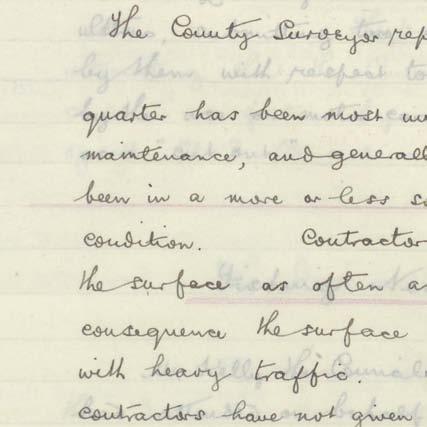 The County Surveyor rep
quarter has been most
maintenance, and generall
been in a more or less
condition. Contractor
the surface as often a
consequence the surface
with heavy traffic.
contractors have not given